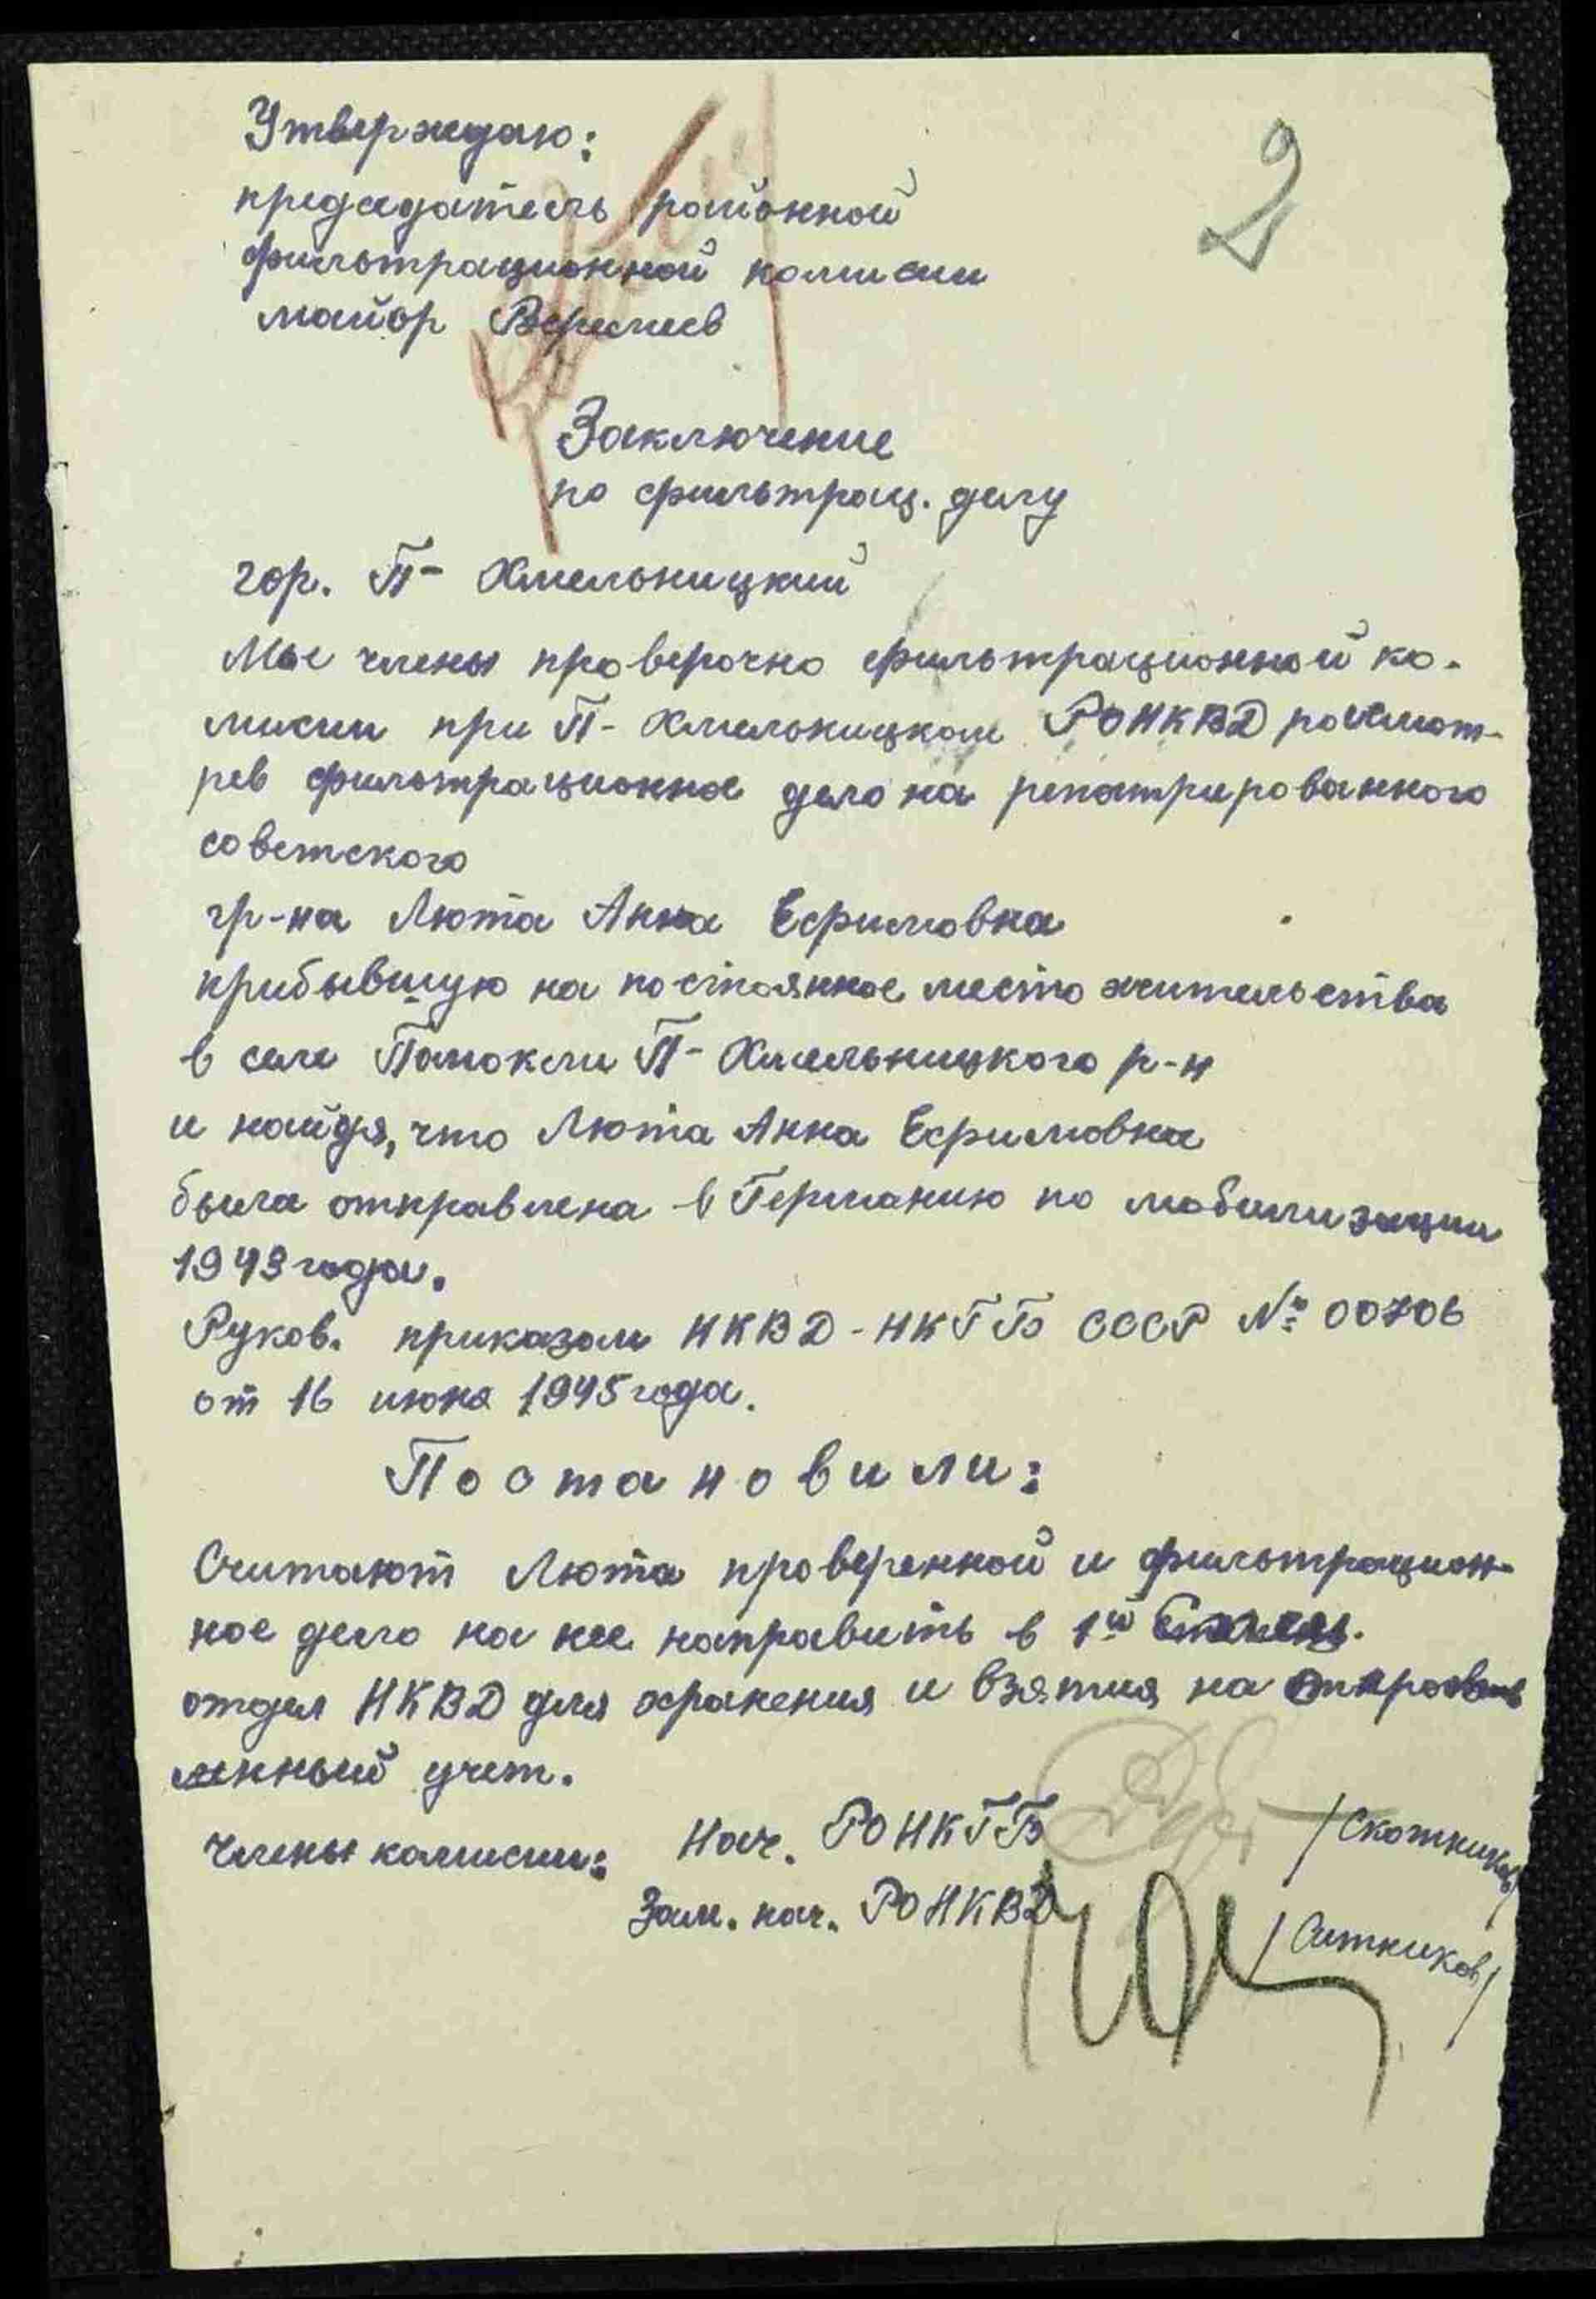 2
Утверждаю:
председатель районной
фильтрационной комисии
майор
Заключение
по фильтрац. делу
гор. П- Хмельницкий
Мы члены проверочно фильтрационной ко-
мисии при П- Хмельницком РОНКВД рассмот-
рев фильтрационное дело на репатрированного
советского
гр-на Люта Анна Ефимовна
прибывшую на постоянное место жительства
в селе П- Хмельницкого р-н
и найдя, что Люта Анна Ефимовна
была отправлена в Германию по мобилизации
1943 года.
Руков. приказом НКВД-НКГБ СССР № 00706
от 16 июня 1945 года.
Постановили:
Считают Люта проверенной и фильтрацион-
ное дело на нее направить в 1й
отдел НКВД для хранения и взятия на
учет.
Члены комисии: Нач. РОНКГБ /Скотников/
Зам. нач. РОНКВД /Ситников/